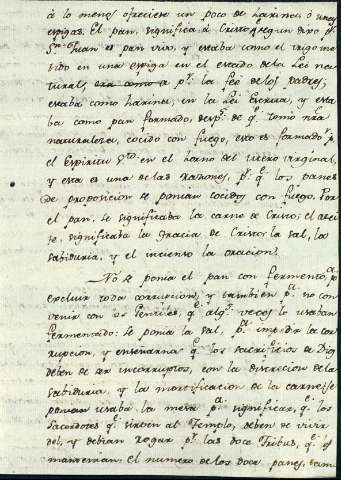 à lo menos ofreciese un poco de harina ó unas
espigas. El pan, significa à Cristo, segun dijo pr.
Sn. Juan es pan vivo, y estaba como el trigo me
tido en una espiga en el estado de la Lei na
tural, era como a pr. la feé de los padres;
estaba como harina, en la Lei Escrita, y esta
ba como pan formado, desps. de qe. tomó nra
naturaleza, cocido con fuego, esto es formado pr.
el Espiritu Sto. en el horno del utero virginal,
y esta es una de las razones, pr. qe. los panes
de proposicion se ponian cocidos con fuego. Por
el pan, se significaba la carne de Cristo; el acei
te, significaba la gracia de Cristo; la sal, la
sabiduria, y el incienso la oracion.
No se ponia el pan con fermento, pa.
excluir toda corrupcion, y tambien pa. no con
venir con los Gentiles, qe. algs. veces lo usaban
fermentado: se ponia la sal, pa. impedir la cor
rupcion, y enseñarnos qe. los sacrificios de Dios
deben de ser incorruptos, con la discrecion de la
sabiduria, y la mortificacion de la carne: se
ponian sobre la mesa pa. significar, qe. los
Sacerdotes qe. sirven al Templo, deben de vivir
del, y debian rogar pr. las doce Tribus, qe. los
mantenian. El numero de los doce panes, tam